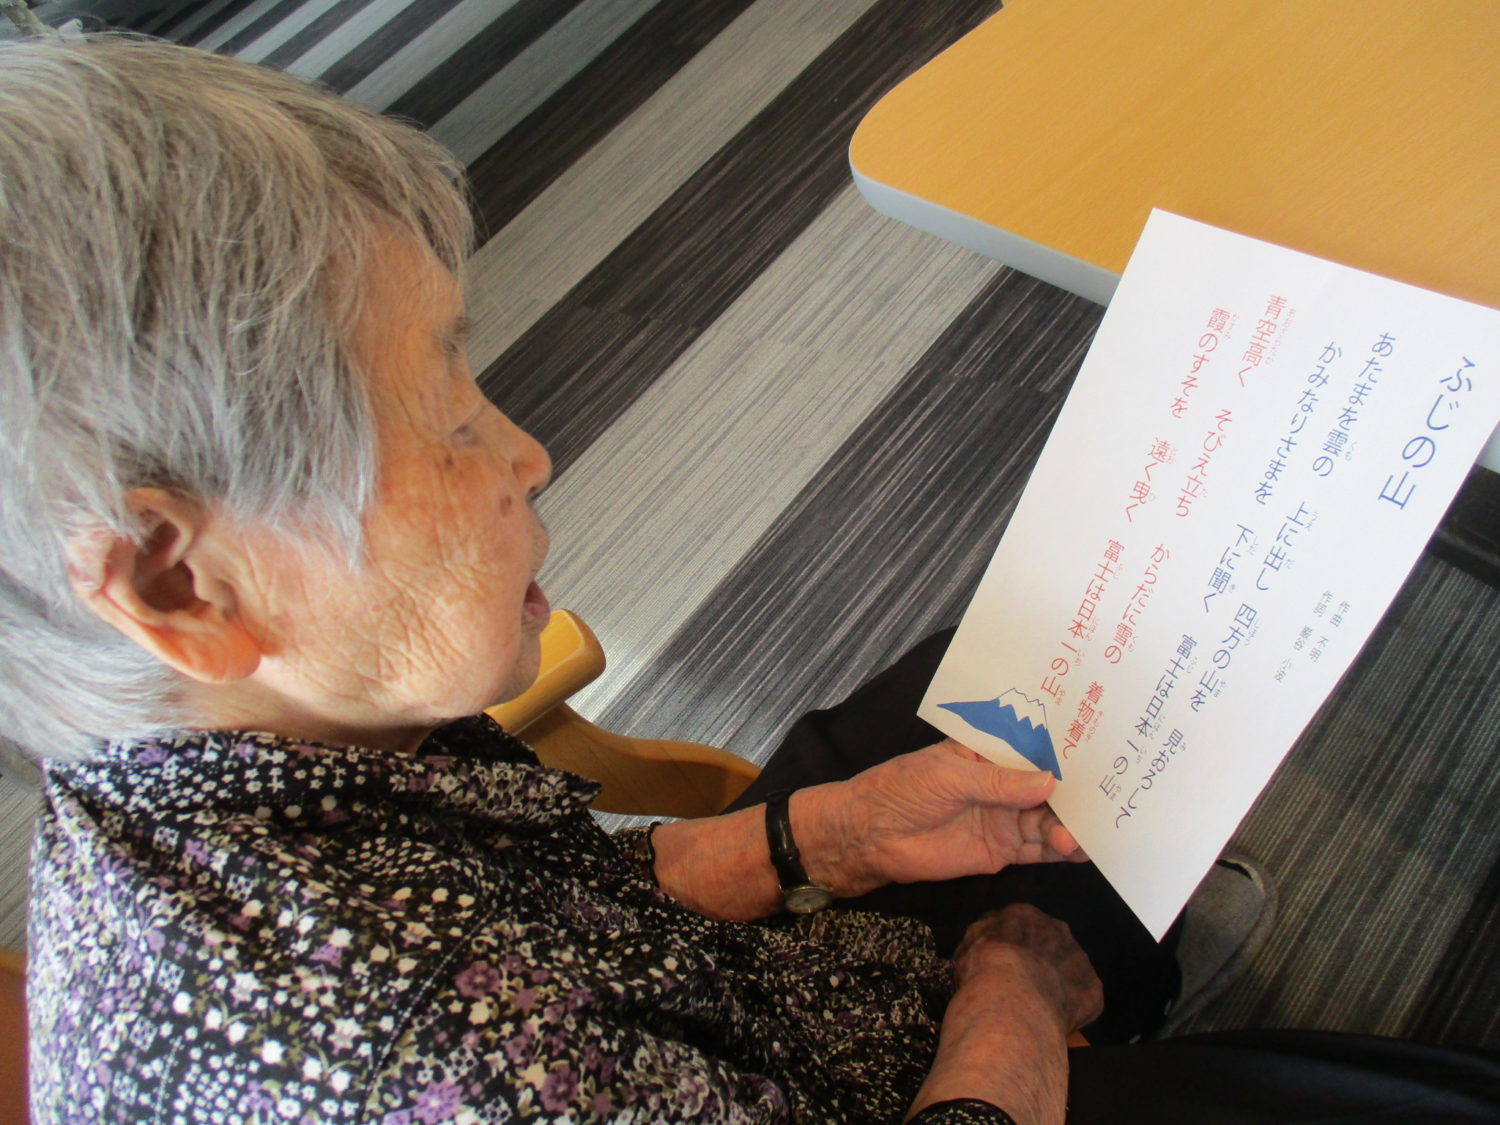 ふじの山
作曲 不明
作詞 巖谷 小波
あたまを雲の 上に出し 四方の山を 見おろして
かみなりさまを 下に聞く 富士は日本一の山
青空高く そびえ立ち からだに雪の 着物着て
霞のすそを 遠く曳く 富士は日本一の山